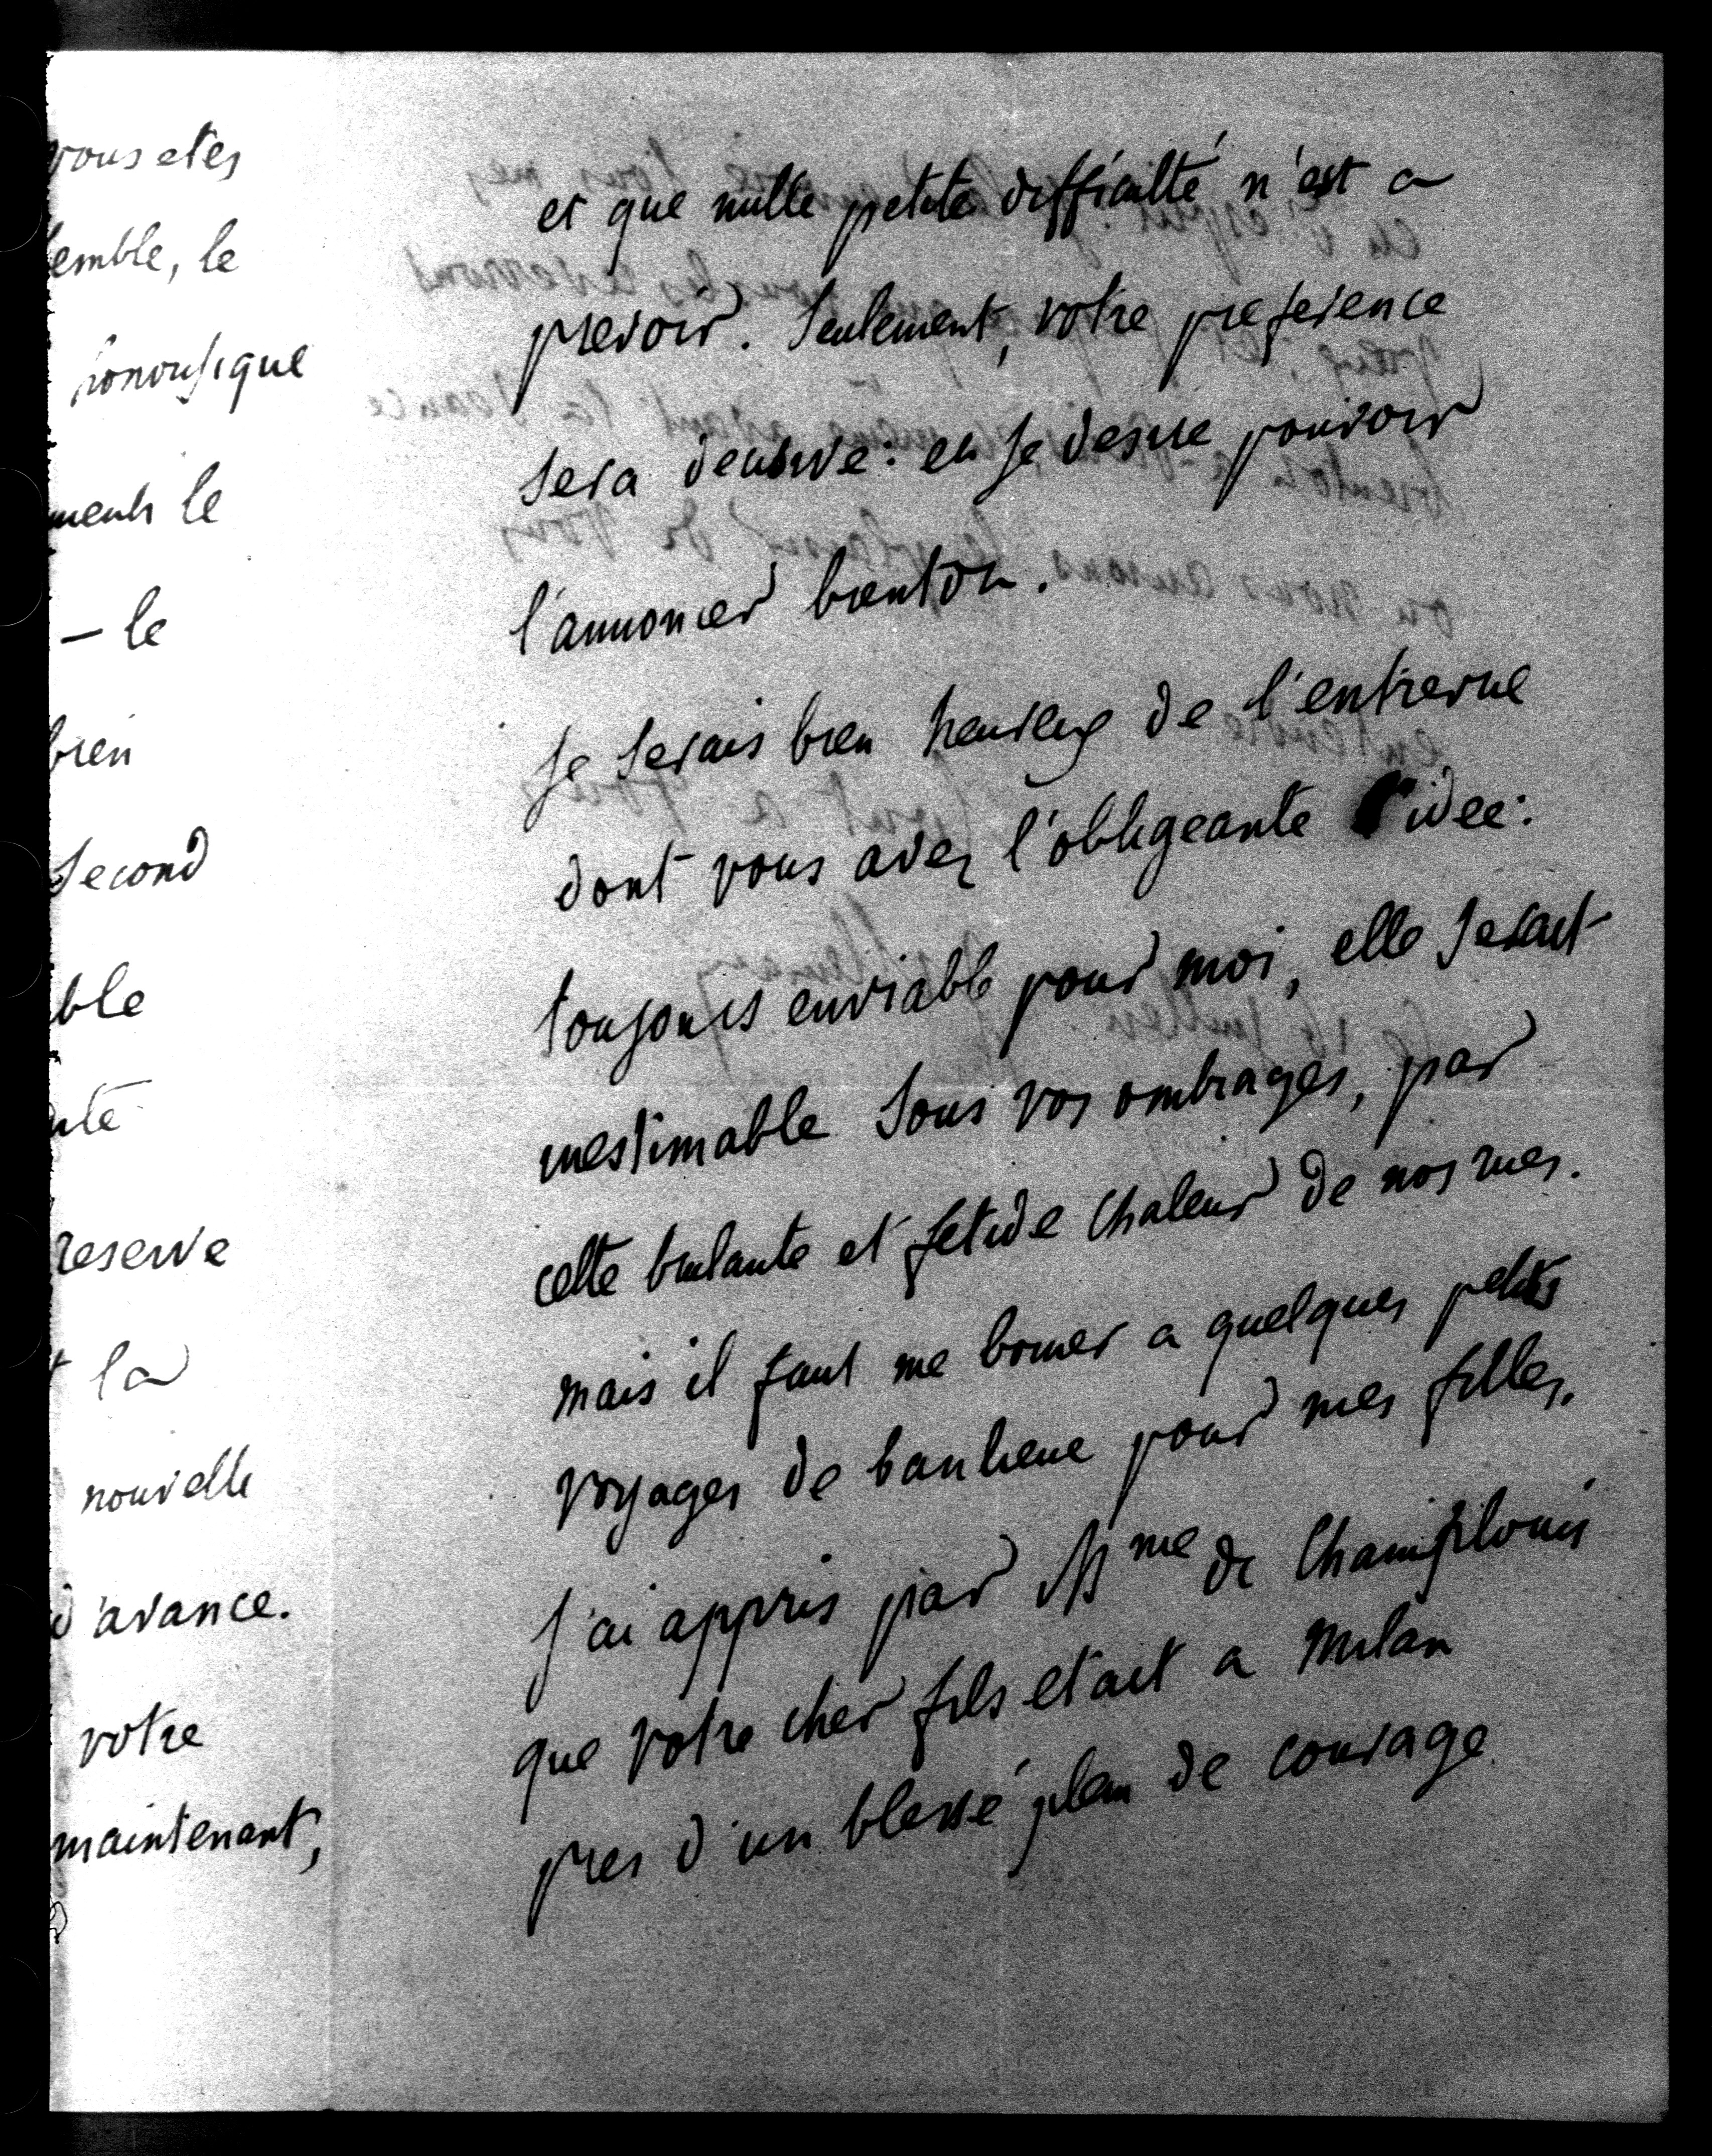 vous etes
semble, le
honorifique
ments le
— le
bien
second
ble
nte
reserve
t la
nouvelle
d'avance.
votre
maintenant,
et que nulle petite difficulté n'est a
prevoir. Seulement, votre preference
sera decisive: et je desire pouvoir
l'annoncer bientot.
Je serais bien heureux de l'entrevue
dont vous avez l'obligeante idee:
toujours enviable pour moi, elle serait
inestimable sous vos ombrages, par
cette brulante et fetide chaleur de nos rues.
mais il faut me borner a quelques petits
voyages de banlieue pour mes filles.
J'ai appris par Mme de Champlouis
que votre cher fils etait a Milan
pres d'un blessé plein de courage